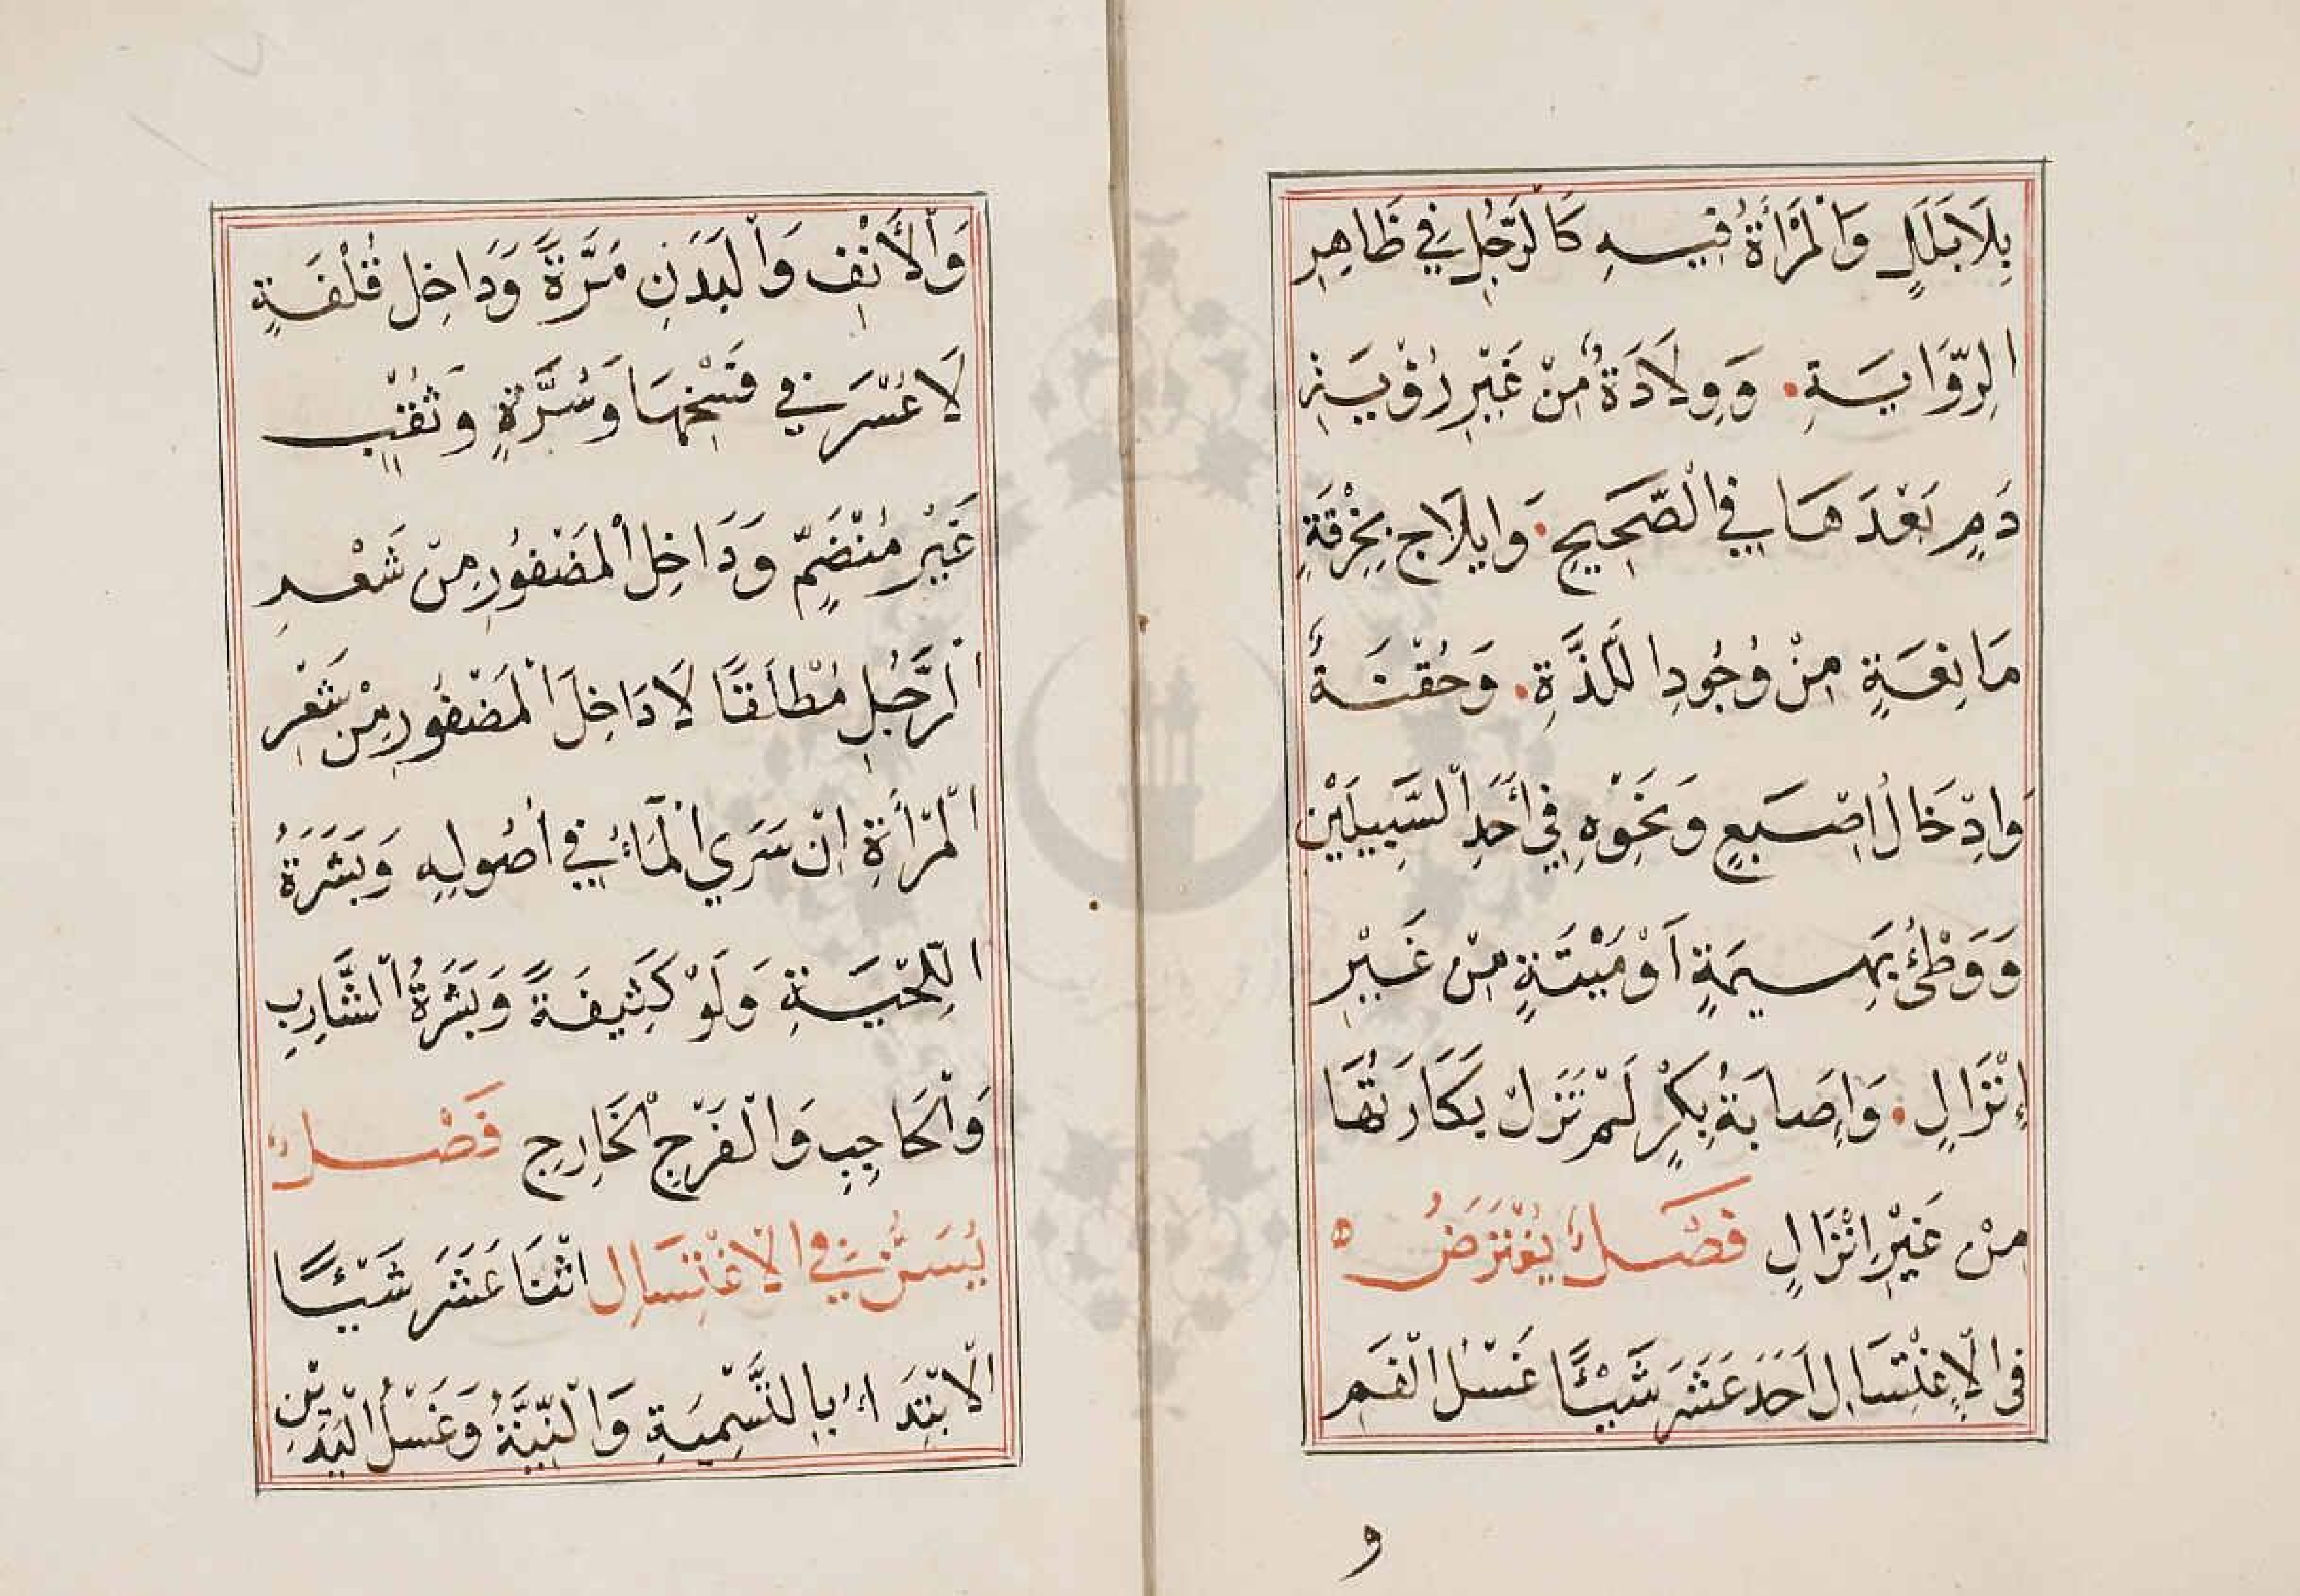 بِلَا بَلَلٍ وَالْمَرْأَةُ فِيهِ كَالرَّجُلِ فِي ظَاهِرِ
الرِّوَايَةِ. وَوِلَادَةٌ مِنْ غَيْرِ رُؤْيَةِ
دَمٍ بَعْدَهَا فِي الصَّحِيحِ. وَايلَاج بِخِرْقَةٍ
مَانِعَةٍ مِنْ وُجُودِ اللَّذَّةِ. وَحُقْنَةٌ
وَادْخَالُ اصْبَعٍ وَنَحْوِهِ فِي أَحَدِ السَّبِيلَيْنِ
وَوَطْئُ بَهِيمَةٍ اَوْ مَيْتَةٍ مِنْ غَيْرِ
إِنْزَالٍ. وَاِصَابَةُ بِكْرٍ لَمْ تَزَلْ بَكَارَتُهَا
مِنْ غَيْرِ اِنْزَالٍ فَصْلٌ يُفْتَرَضُ ه
فى الْاِغْتِسَالِ اَحَدَ عَشَرَ شَيْئًا غَسْلُ الْفَمِ
و
وَالْأَنْفِ وَالْبَدَنِ مَرَّةً وَدَاخِلِ قُلْفَةٍ
لَا عُسْرَ فِي فَسْخِهَا وَسُرَّةٍ وَثُقْبٍ
غَيْرِ مُنْضَمٍّ وَدَاخِلِ الْمَضْفُورِ مِنْ شَعْرِ
الرَّجُلِ مُطْلَقًا لَا دَاخِلَ الْمَضْفُورِ مِنْ شَعْرِ
الْمَرْأَةِ اِنْ سَرَي الْمَآءُ فِي أُصُولِهِ وَبَشَرَةُ
اللِّحْيَةِ وَلَوْ كَثِيفَةً وَبَشَرَةُ الشَّارِبِ
وَالْحَاجِبِ وَالْفَرْجِ الْخَارِجِ فَصْلٌ
يُسَنُّ فِي الْاغْتِسَالِ اثْنَا عَشَرَ شَيْئًا
الْابْتِدَاءُ بِالتَّسْمِيَةِ وَالنِّيَّةُ وَغَسْلُ الْيَدَيْنِ